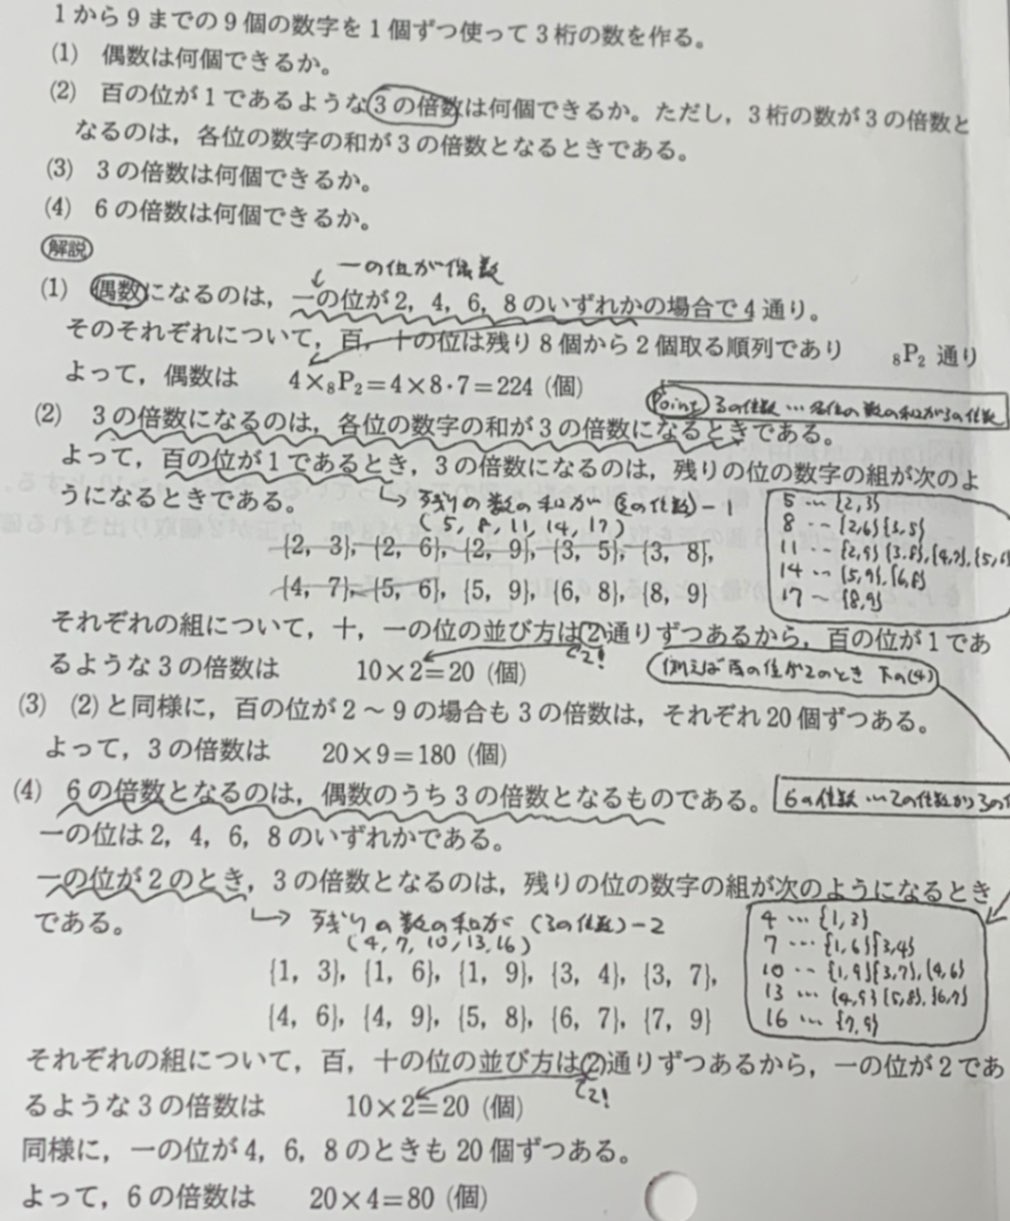 1から9までの9個の数字を1個ずつ使って3桁の数を作る。
(1) 偶数は何個できるか。
(2) 百の位が1であるような3の倍数は何個できるか。ただし，3桁の数が3の倍数と
なるのは，各位の数字の和が3の倍数となるときである。
(3) 3の倍数は何個できるか。
(4) 6の倍数は何個できるか。
解説
一の位が偶数
(1) 偶数になるのは，一の位が2，4，6，8のいずれかの場合で4通り。
そのそれぞれについて，百，十の位は残り8個から2個取る順列であり ₈P₂ 通り
よって，偶数は 4×₈P₂=4×8·7=224 (個)
Point 3の倍数…各位の数の和が3の倍数
(2) 3の倍数になるのは，各位の数字の和が3の倍数になるときである。
よって，百の位が1であるとき，3の倍数になるのは，残りの位の数字の組が次のよ
うになるときである。
↳ 残りの数の和が(3の倍数)-1
(5, 8, 11, 14, 17)
{2，3}，{2，6}，{2，9}，{3，5}，{3，8}，
{4，7}，{5，6}，{5，9}，{6，8}，{8，9}
5 … {2,3}
8 … {2,6}{3,5}
11 … {2,9}{3,8},{4,7},{5,6
14 … {5,9},{6,8}
17 … {8,9}
それぞれの組について，十，一の位の並び方は2通りずつあるから，百の位が1であ
るような3の倍数は 10×2=20 (個)
2!
例えば百の位が2のとき 下の(4)
(3) (2)と同様に，百の位が2～9の場合も3の倍数は，それぞれ20個ずつある。
よって，3の倍数は 20×9=180 (個)
(4) 6の倍数となるのは，偶数のうち3の倍数となるものである。
6の倍数…2の倍数かつ3の
一の位は2，4，6，8のいずれかである。
一の位が2のとき，3の倍数となるのは，残りの位の数字の組が次のようになるとき
である。
↳ 残りの数の和が (3の倍数)-2
(4, 7, 10, 13, 16)
{1，3}，{1，6}，{1，9}，{3，4}，{3，7}，
{4，6}，{4，9}，{5，8}，{6，7}，{7，9}
4 … {1,3}
7 … {1,6}{3,4}
10 … {1,9}{3,7},{4,6}
13 … {4,9}{5,8},{6,7}
16 … {7,9}
それぞれの組について，百，十の位の並び方は2通りずつあるから，一の位が2であ
るような3の倍数は 10×2=20 (個)
2!
同様に，一の位が4，6，8のときも20個ずつある。
よって，6の倍数は 20×4=80 (個)